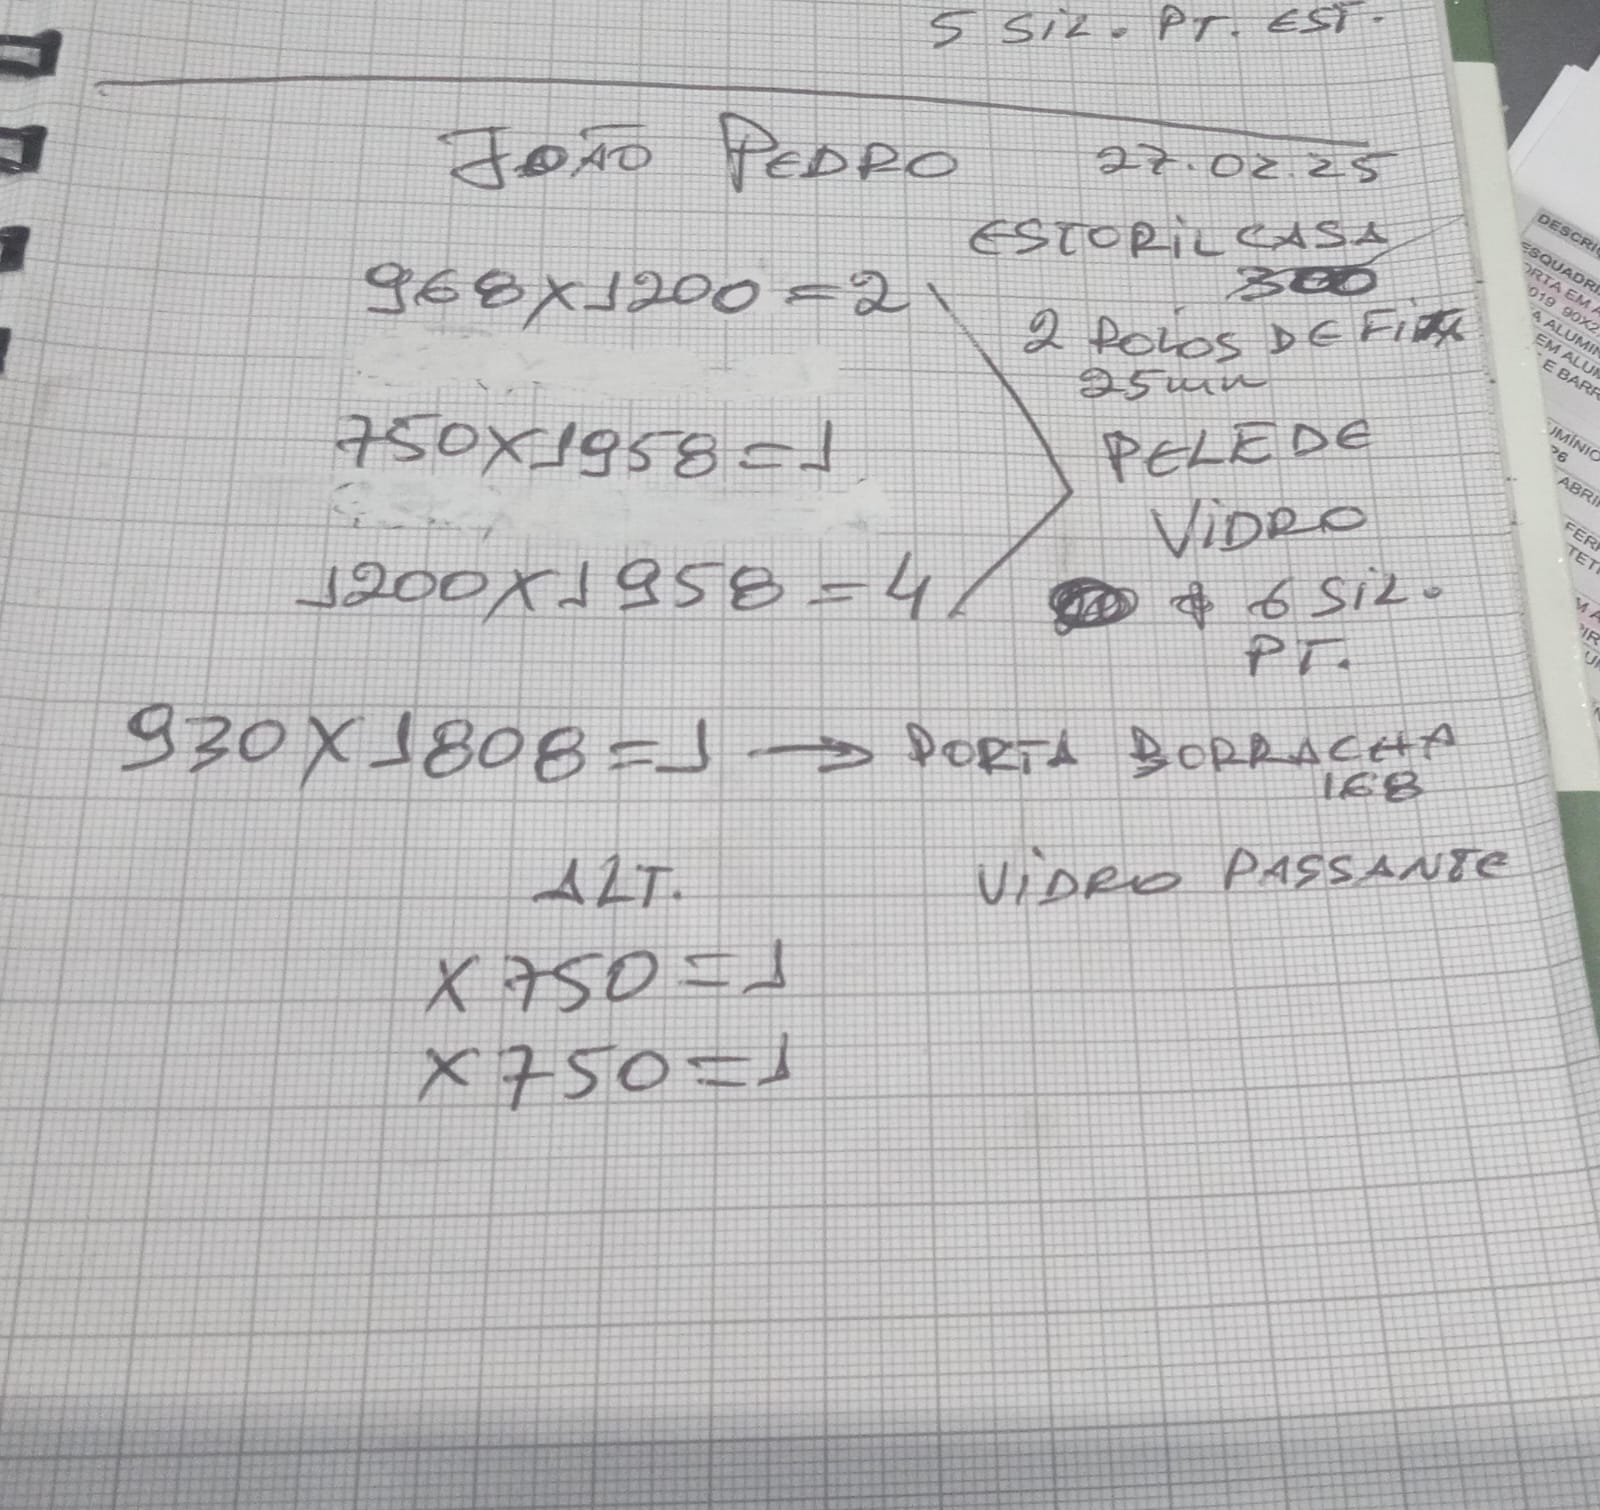 5 SIL. PT. EST.
JOÃO PEDRO 27.02.25
ESTORIL CASA
300
968X1200=2
2 ROLOS DE FITA
25mm
750X1958=1
PELE DE
VIDRO
1200X1958=4
6 SIL.
PT.
930X1808=1 → PORTA BORRACHA
168
ALT. VIDRO PASSANTE
X750=1
X750=1
DESCRI
ESQUADRI
PORTA EM A
019 90X2
A ALUMIN
EM ALUM
E BARR
UMÍNIO
P6
ABRI
FER
TET